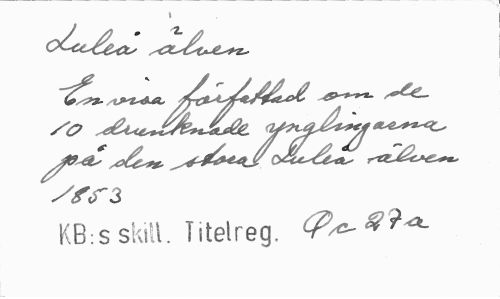 Luleå älven
En visa författad om de
10 drunknade ynglingarna
på den stora Luleå älven
1853
KB:s skill. Titelreg. Qc 27a